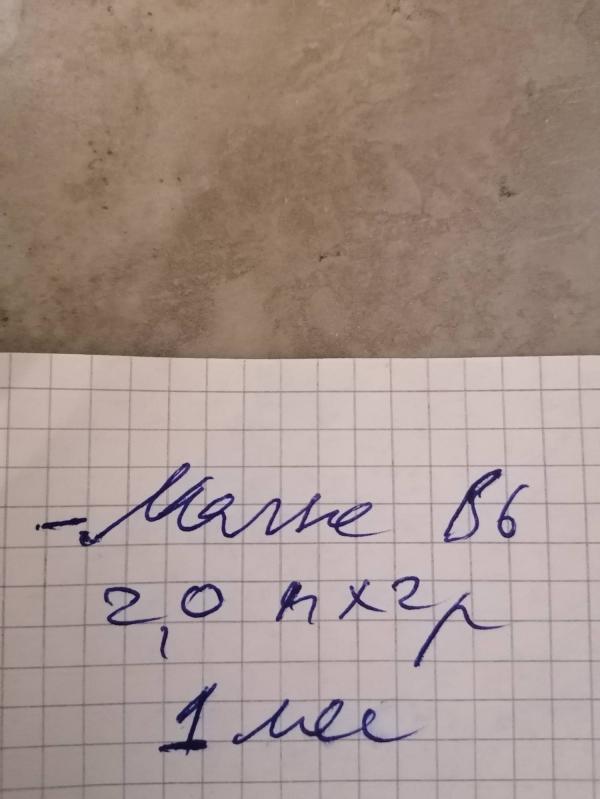 - Магне B6
2,0 т х 2 р
1 мес